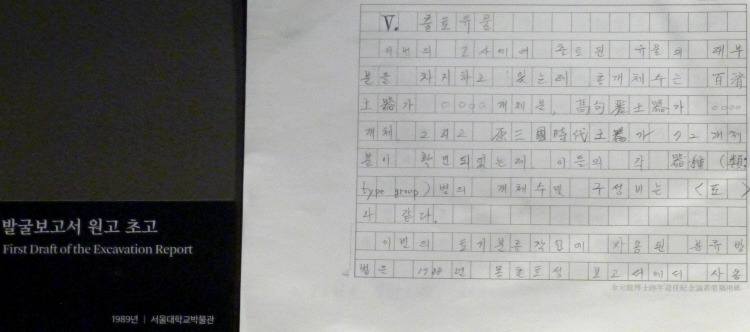 발굴보고서 원고 초고
First Draft of the Excavation Report
1989년 | 서울대학교박물관
V. 출토유물
이번의 조사에서 출토된 유물의 대부
분을 차지하고 있는데 총개체수는 百濟
土器가 ○○○○ 개체분, 高句麗土器가 ○○○○
개체 그리고 原三國時代土器가 72 개체
분이 확인되었는데 이들의 각 器種(類:
type group)별의 개체수및 구성비는 <표>
와 같다.
이번의 토기분류작업에 사용된 분류방
법은 1988년 몽촌토성 보고서에서 사용